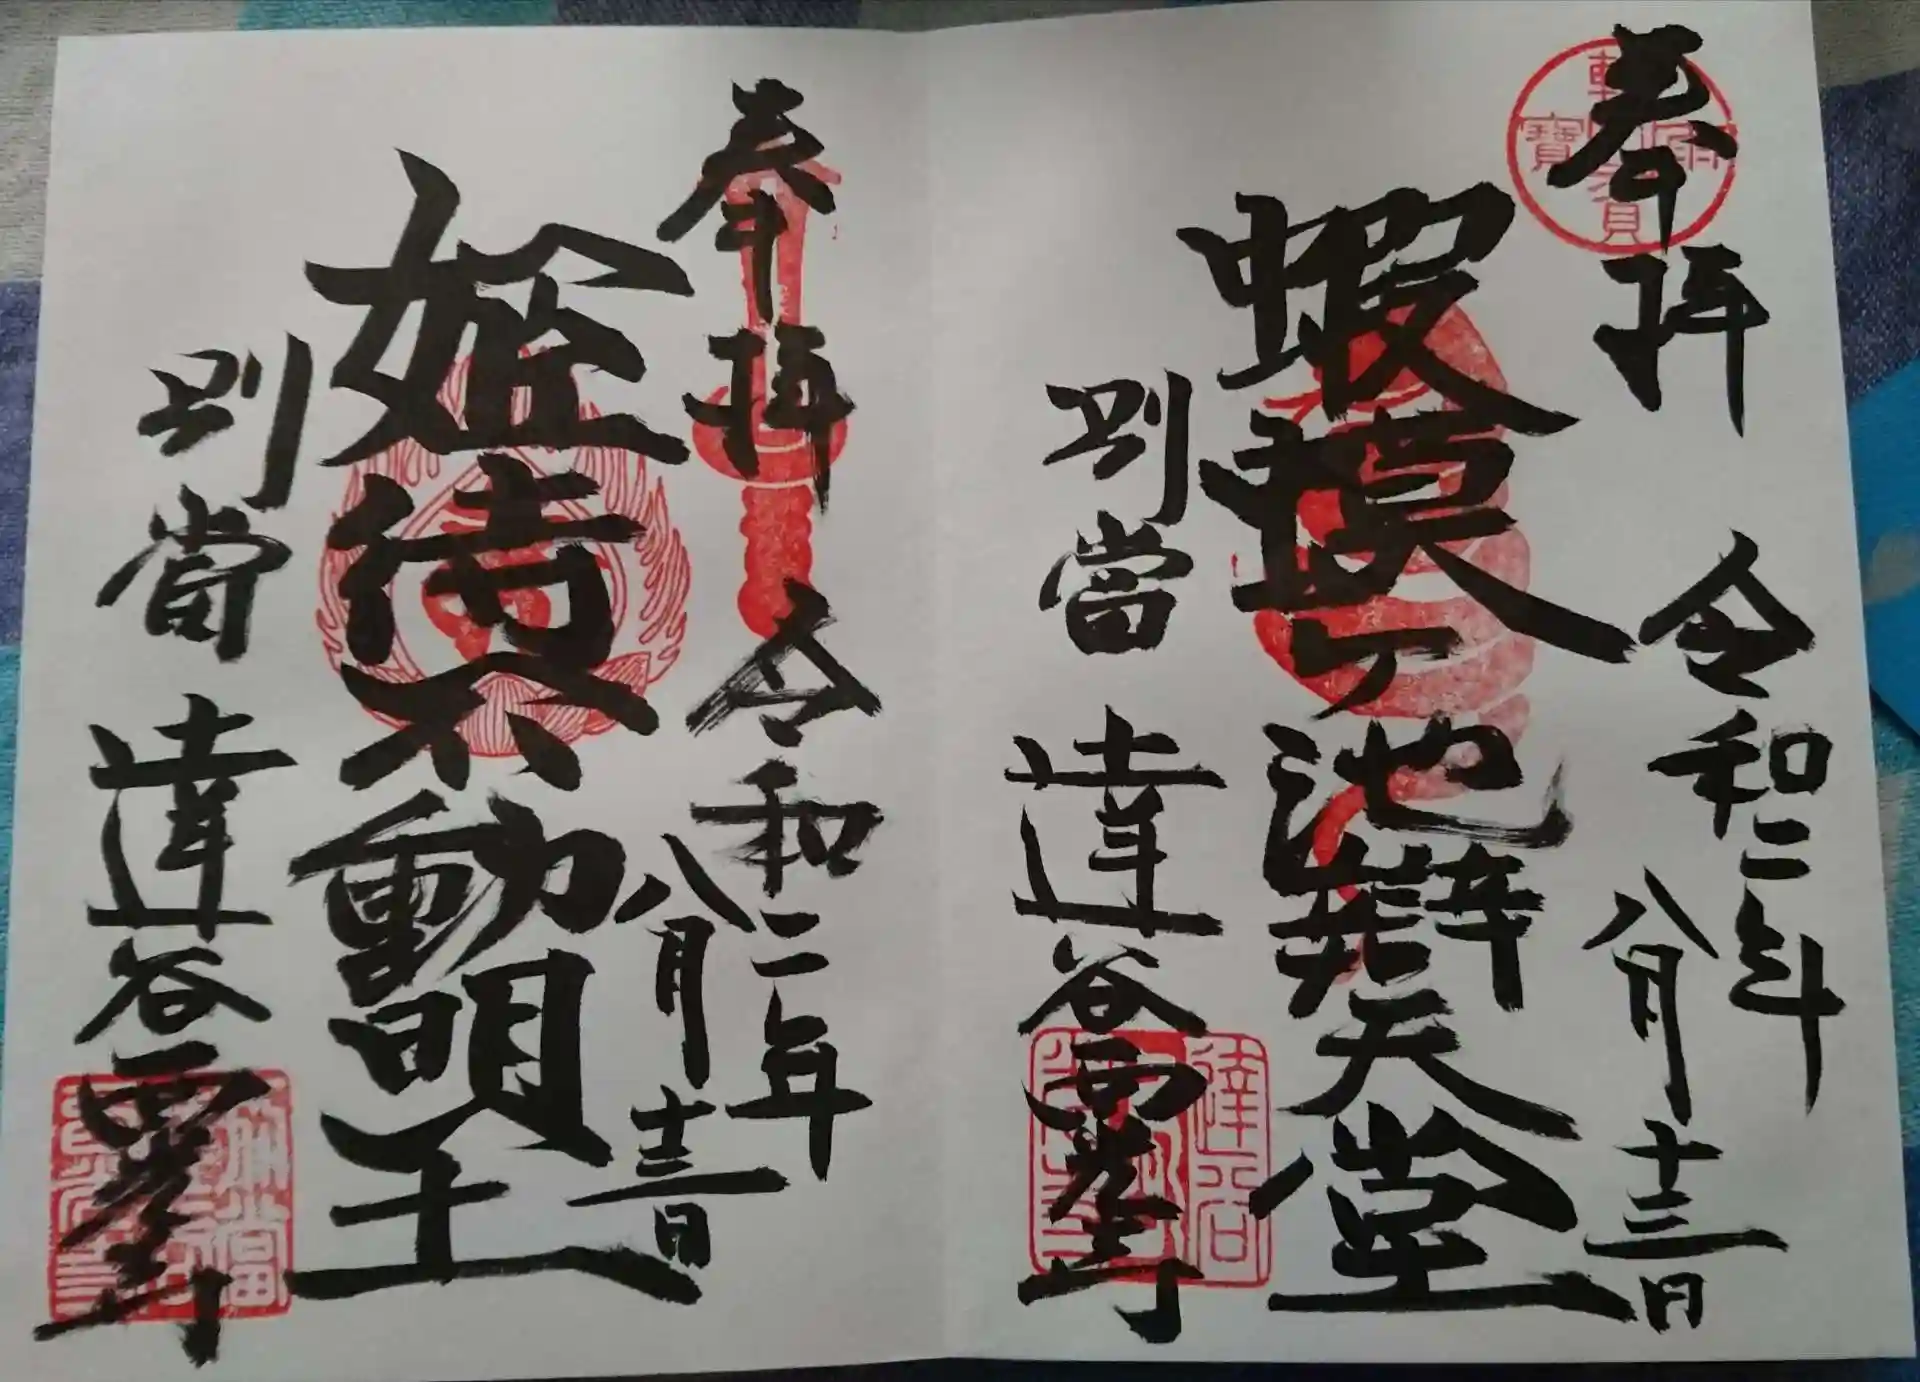 奉拝
令和二年
八月十三日
蝦蟆ヶ池辯天堂
別當 達谷西光寺
奉拝
令和二年
八月十三日
姫待不動明王
別當 達谷西光寺